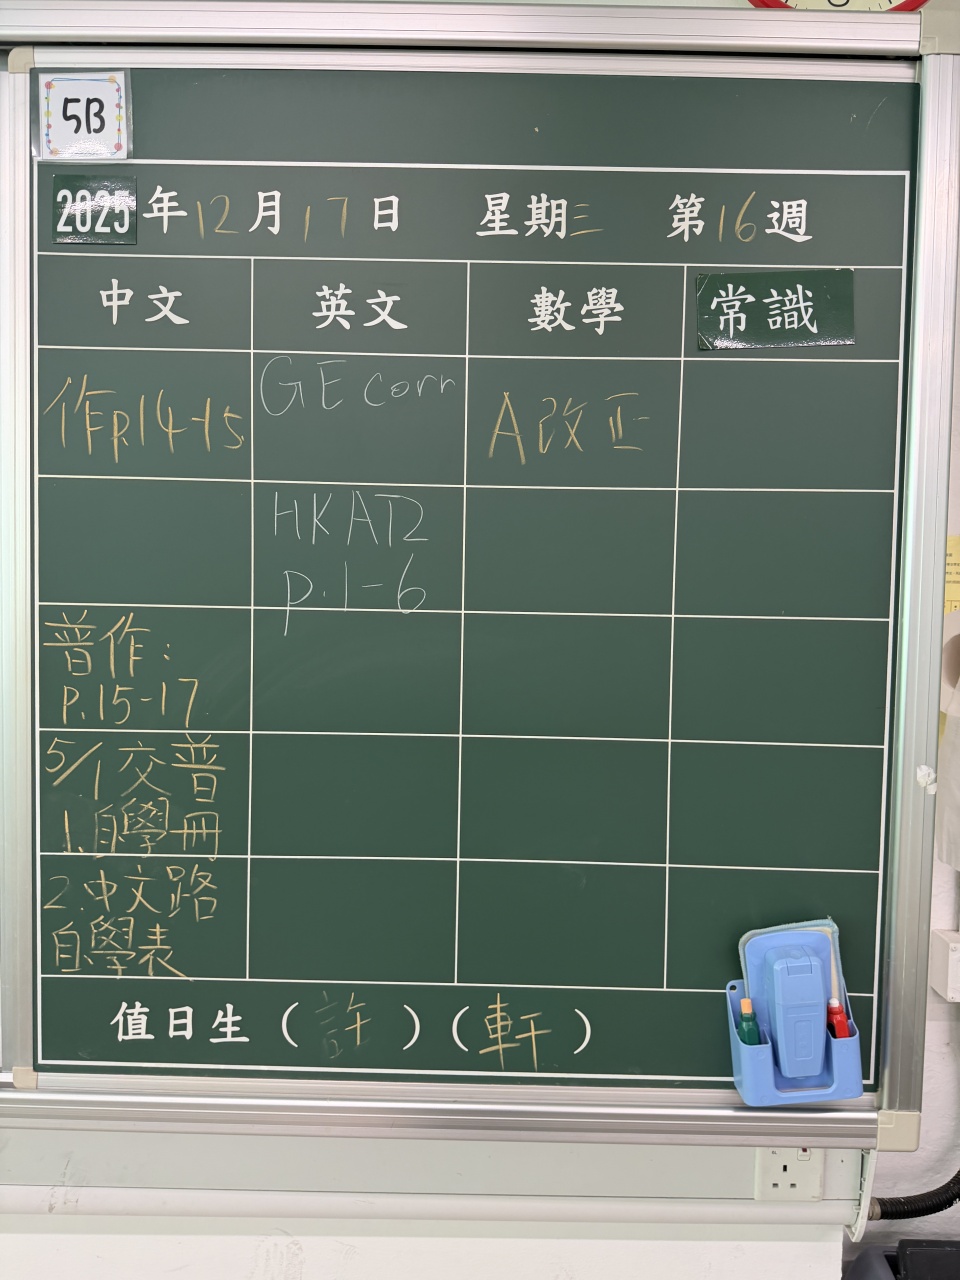 5B
2025年12月17日 星期三 第16週
中文 英文 數學 常識
作P.14-15 GE corr A改正
HKAT2
p.1-6
普作:
P.15-17
5/1交普
1.自學冊
2.中文路
自學表
值日生(許)(軒)